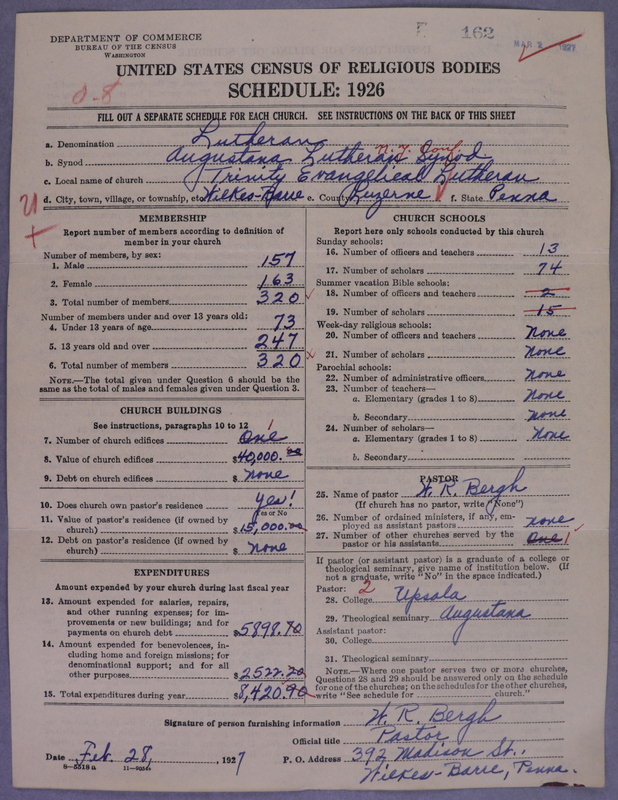 DEPARTMENT OF COMMERCE
BUREAU OF THE CENSUS
WASHINGTON
162
MAR 2 1927
UNITED STATES CENSUS OF RELIGIOUS BODIES
SCHEDULE: 1926
FILL OUT A SEPARATE SCHEDULE FOR EACH CHURCH. SEE INSTRUCTIONS ON THE BACK OF THIS SHEET
a. Denomination Lutheran
b. Synod Augustana Lutheran Synod N. Y. Conf.
c. Local name of church Trinity Evangelical Lutheran
d. City, town, village, or township, etc. Wilkes-Barre e. County Luzerne f. State Penna
MEMBERSHIP
Report number of members according to definition of member in your church
Number of members, by sex:
1. Male 157
2. Female 163
3. Total number of members 320
Number of members under and over 13 years old:
4. Under 13 years of age 73
5. 13 years old and over 247
6. Total number of members 320
NOTE.—The total given under Question 6 should be the same as the total of males and females given under Question 3.
CHURCH BUILDINGS
See instructions, paragraphs 10 to 12
7. Number of church edifices One 1
8. Value of church edifices $40,000.00
9. Debt on church edifices $ None
10. Does church own pastor's residence Yes!
Yes or No
11. Value of pastor's residence (if owned by church) $15,000.00
12. Debt on pastor's residence (if owned by church) $ None
EXPENDITURES
Amount expended by your church during last fiscal year
13. Amount expended for salaries, repairs, and other running expenses; for improvements or new buildings; and for payments on church debt $5898.70
14. Amount expended for benevolences, including home and foreign missions; for denominational support; and for all other purposes $2522.20
15. Total expenditures during year $8,420.90
CHURCH SCHOOLS
Report here only schools conducted by this church
Sunday schools:
16. Number of officers and teachers 13
17. Number of scholars 74
Summer vacation Bible schools:
18. Number of officers and teachers 2
19. Number of scholars 15
Week-day religious schools:
20. Number of officers and teachers None
21. Number of scholars None
Parochial schools:
22. Number of administrative officers None
23. Number of teachers—
a. Elementary (grades 1 to 8) None
b. Secondary None
24. Number of scholars—
a. Elementary (grades 1 to 8) None
b. Secondary
PASTOR
25. Name of pastor W. R. Bergh
(If church has no pastor, write "None")
26. Number of ordained ministers, if any, employed as assistant pastors none
27. Number of other churches served by the pastor or his assistants One 1
If pastor (or assistant pastor) is a graduate of a college or theological seminary, give name of institution below. (If not a graduate, write "No" in the space indicated.)
Pastor: 2
28. College Upsala
29. Theological seminary Augustana
Assistant pastor:
30. College
31. Theological seminary
NOTE.—Where one pastor serves two or more churches, Questions 28 and 29 should be answered only on the schedule for one of the churches; on the schedules for the other churches, write "See schedule for church."
Signature of person furnishing information W. R. Bergh
Official title Pastor
Date Feb. 28, 1927 P. O. Address 392 Madison St.,
Wilkes-Barre, Penna.
8-5518 a